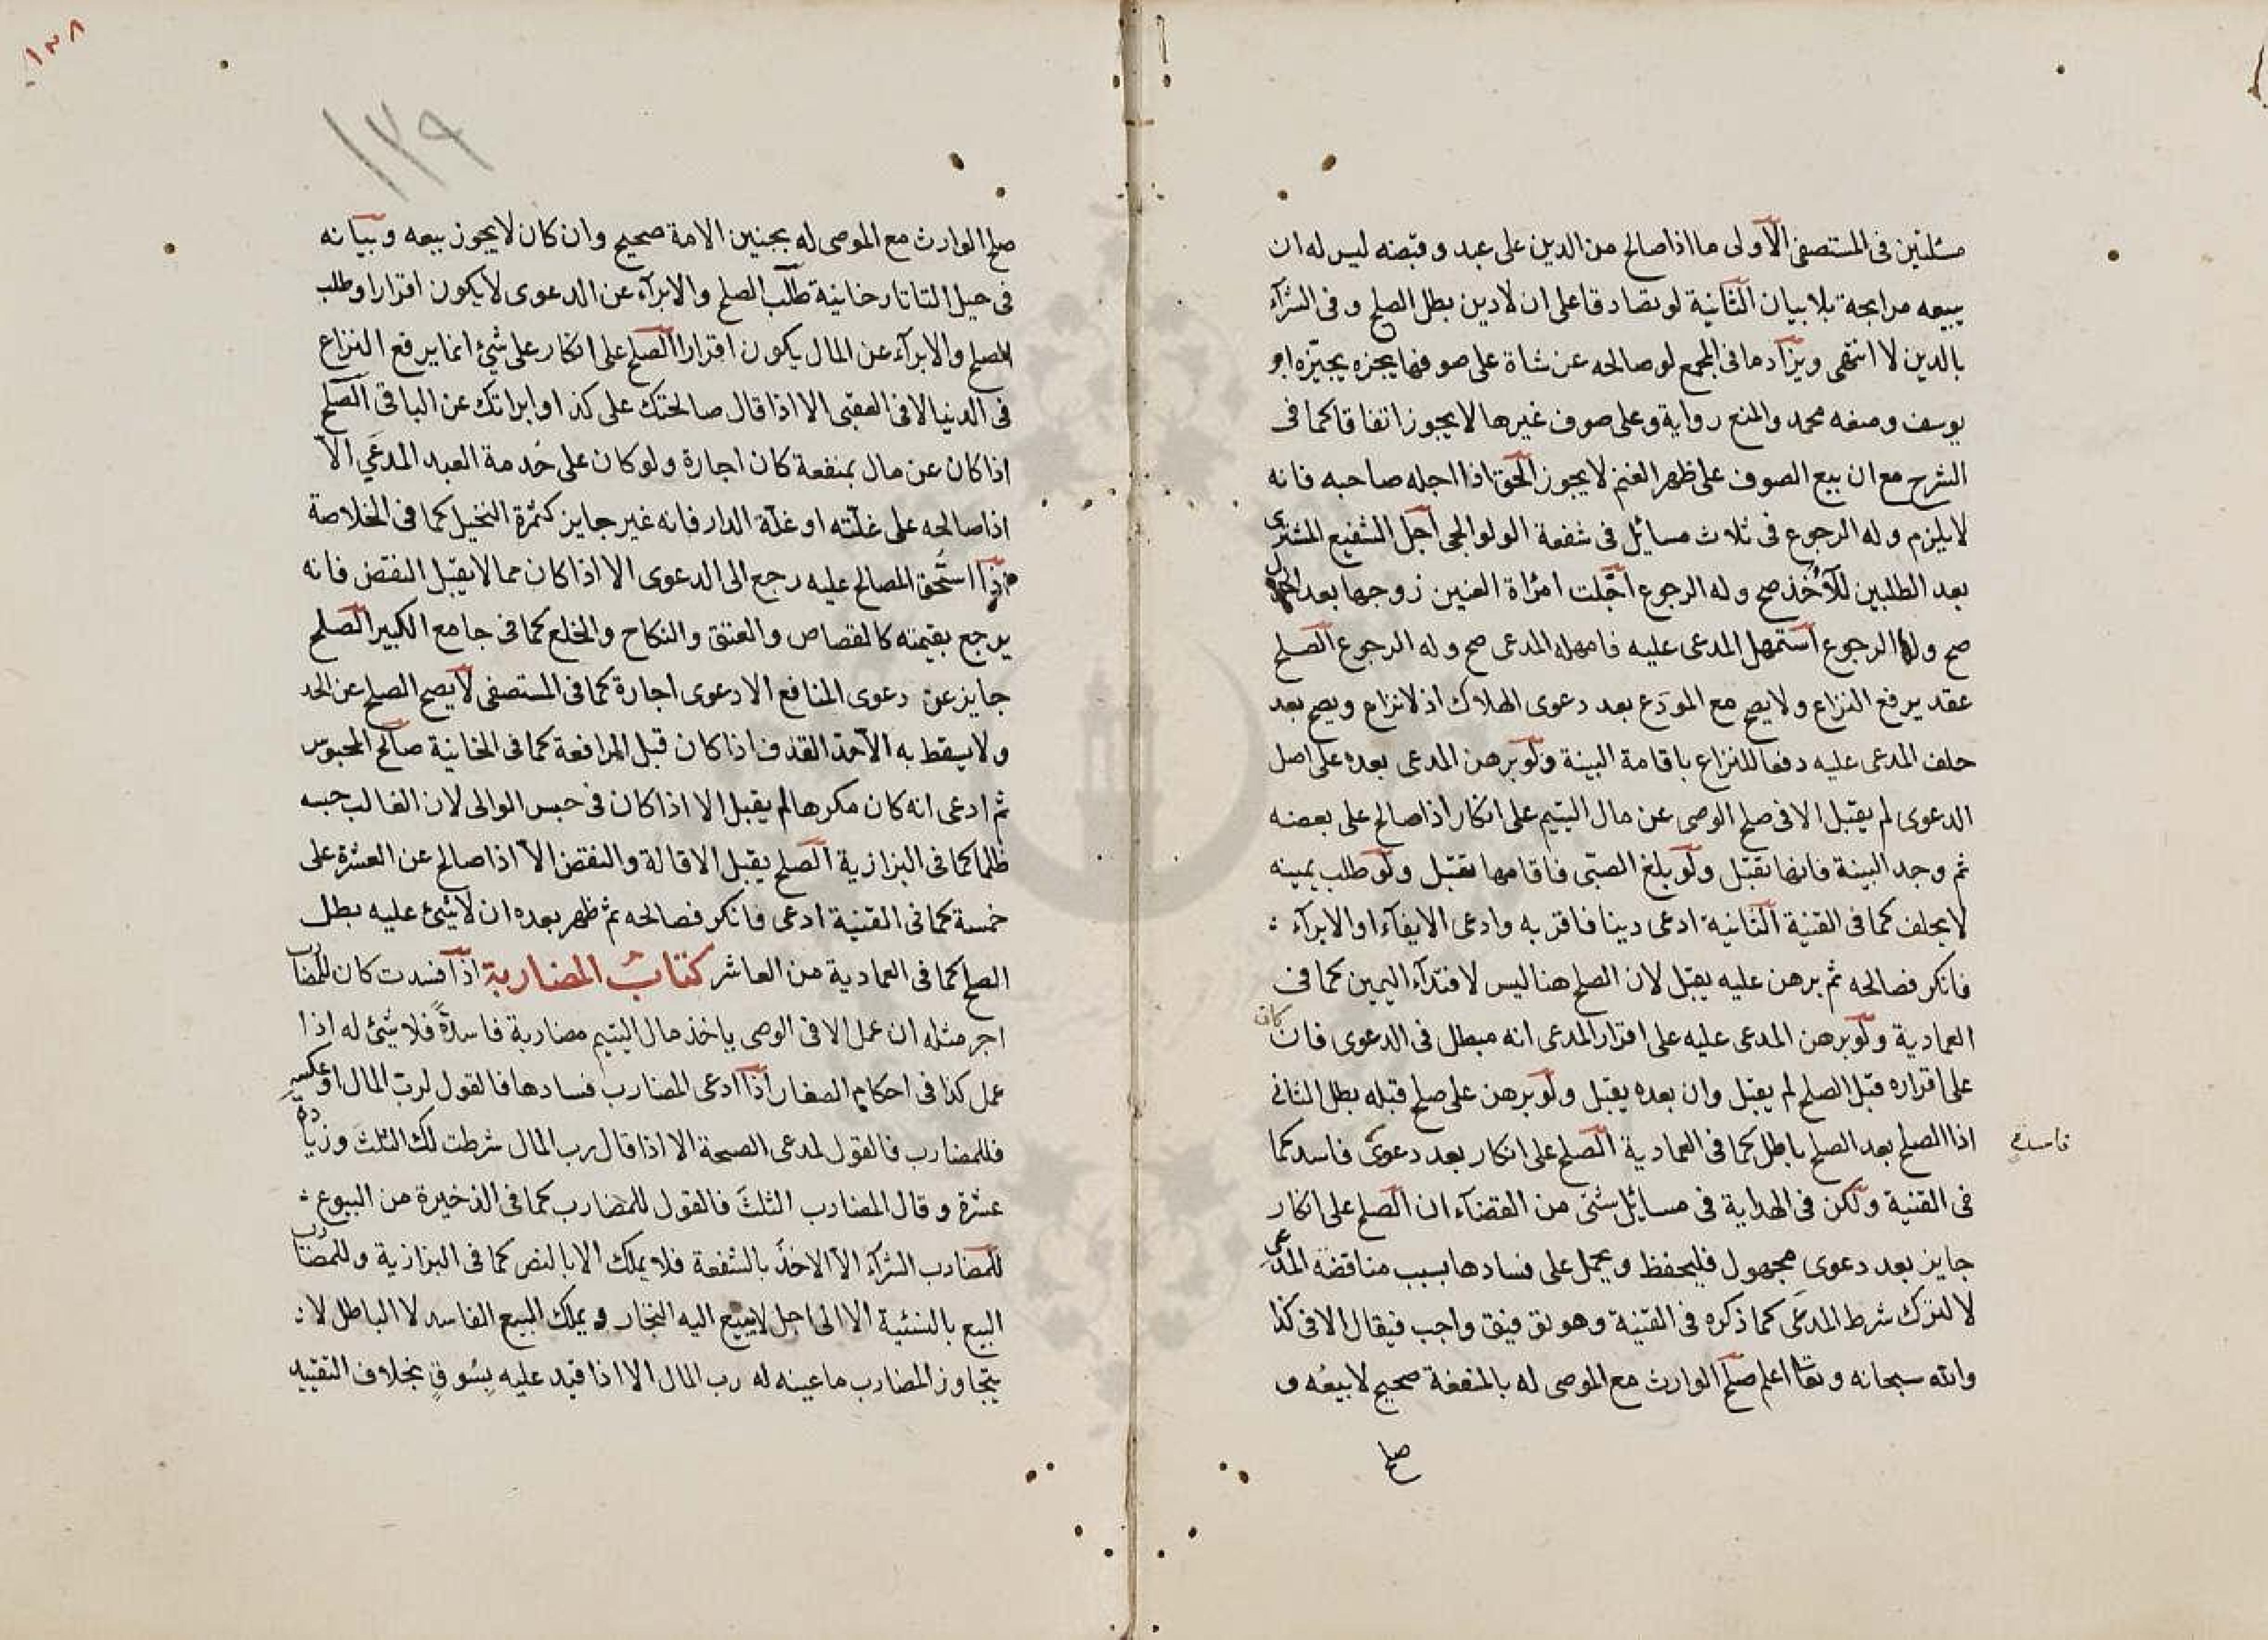 مسئلتين في المستصفى الاولى ما اذا صالح من الدين على عبد وقبضه ليس له ان
يبيعه مرابحة بلا بيان الثانية لو تصادقا على ان لا دين بطل الصلح وفي الشرآء
بالدين لا انتهى ويزاد ما في المجمع لو صالحه عن شاة على صوفها يجزه يجيزه ابو
يوسف ومنعه محمد والمنع رواية وعلى صوف غيرها لا يجوز اتفاقا كما في
الشرح مع ان بيع الصوف على ظهر الغنم لا يجوز الحق اذا اجله صاحبه فانه
لا يلزم وله الرجوع في ثلاث مسائل في شفعة الولوالجي اجل الشفيع المشترى
بعد الطلبين للآخذ صح وله الرجوع اجلت امرأة العنين زوجها بعد الحول
صح ولها الرجوع استمهل المدعى عليه فامهله المدعى صح وله الرجوع الصلح
عقد يرفع النزاع ولا يصح مع المودع بعد دعوى الهلاك اذ لا نزاع ويصح بعد
حلف المدعى عليه دفعا للنزاع باقامة البينة ولو برهن المدعى بعده على اصل
الدعوى لم يقبل الا في صلح الوصى عن مال اليتيم على انكار اذا صالح على بعضه
ثم وجد البينة فانها تقبل ولو بلغ الصبى فاقامها تقبل ولو طلب يمينه
لا يحلف كما في القنية الثانية ادعى دينا فاقر به وادعى الايفآء او الابرآء :
فانكر فصالحه ثم برهن عليه يقبل لان الصلح هنا ليس لافتدآء اليمين كما في
العمادية ولو برهن المدعى عليه على اقرار المدعى انه مبطل في الدعوى فان كان
على اقراره قبل الصلح لم يقبل وان بعده يقبل ولو برهن على صلح قبله بطل الثاني
اذا الصلح بعد الصلح باطل كما في العمادية الصلح على انكار بعد دعوى فاسد كما
فاسدة
في القنية ولكن في الهداية في مسائل شتى من القضآء ان الصلح على انكار
جايز بعد دعوى مجهول فليحفظ ويحمل على فسادها بسبب مناقضة المدعى
لا لترك شرط المدعى كما ذكره في القنية وهو توفيق واجب فيقال الا في كذا
والله سبحانه وتعا اعلم صلح الوارث مع الموصى له بالمنفعة صحيح لا بيعه و
صلح
١٣٨
١٢٩
صلح الوارث مع الموصى له بجنين الامة صحيح وان كان لا يجوز بيعه وبيانه
في حيل التاتارخانية طلب الصلح والابرآء عن الدعوى لا يكون اقرارا وطلب
الصلح والابرآء عن المال يكون اقرارا الصلح على انكار على شئ انما يرفع النزاع
في الدنيا لا في العقبى الا اذا قال صالحتك على كذا وابراتك عن الباقى الصلح
اذا كان عن مال بمنفعة كان اجارة ولو كان على خدمة العبد المدعى الا
اذا صالحه على غلته او غلة الدار فانه غير جايز كثمرة النخيل كما في الخلاصة
اذا استحق المصالح عليه رجع الى الدعوى الا اذا كان مما لا يقبل النقض فانه
يرجع بقيمته كالقصاص والعتق والنكاح والخلع كما في جامع الكبير الصلح
جايز عن دعوى المنافع الا دعوى اجارة كما في المستصفى لا يصح الصلح عن الحد
ولا يسقط به الا حد القذف اذا كان قبل المرافعة كما في الخانية صالح المحبوس
ثم ادعى انه كان مكرها لم يقبل الا اذا كان في حبس الوالى لان الغالب حبسه
ظلما كما في البزازية الصلح يقبل الاقالة والنقض الا اذا صالح عن العشرة على
خمسة كما في القنية ادعى فانكر فصالحه ثم ظهر بعده ان لا شئ عليه بطل
الصلح كما في العمادية من العاشر كتاب المضاربة اذا فسدت كان للمضارب
اجر مثله ان عمل الا في الوصى ياخذ مال اليتيم مضاربة فاسدة فلا شئ له اذا
عمل كذا في احكام الصغار اذا ادعى المضارب فسادها فالقول لرب المال او عكسه
فللمضارب فالقول لمدعى الصحة الا اذا قال رب المال شرطت لك الثلث وزيادة
عشرة وقال المضارب الثلث فالقول للمضارب كما في الذخيرة من البيوع :
للمضارب الشرآء الا الاخذ بالشفعة فلا يملك الا بالنص كما في البزازية وللمضارب
البيع بالنسئية الا الى اجل لا يبيع اليه التجار ويملك البيع الفاسد لا الباطل لا :
يتجاوز المضارب ما عينه له رب المال الا اذا قيد عليه بسوق بخلاف التقييد